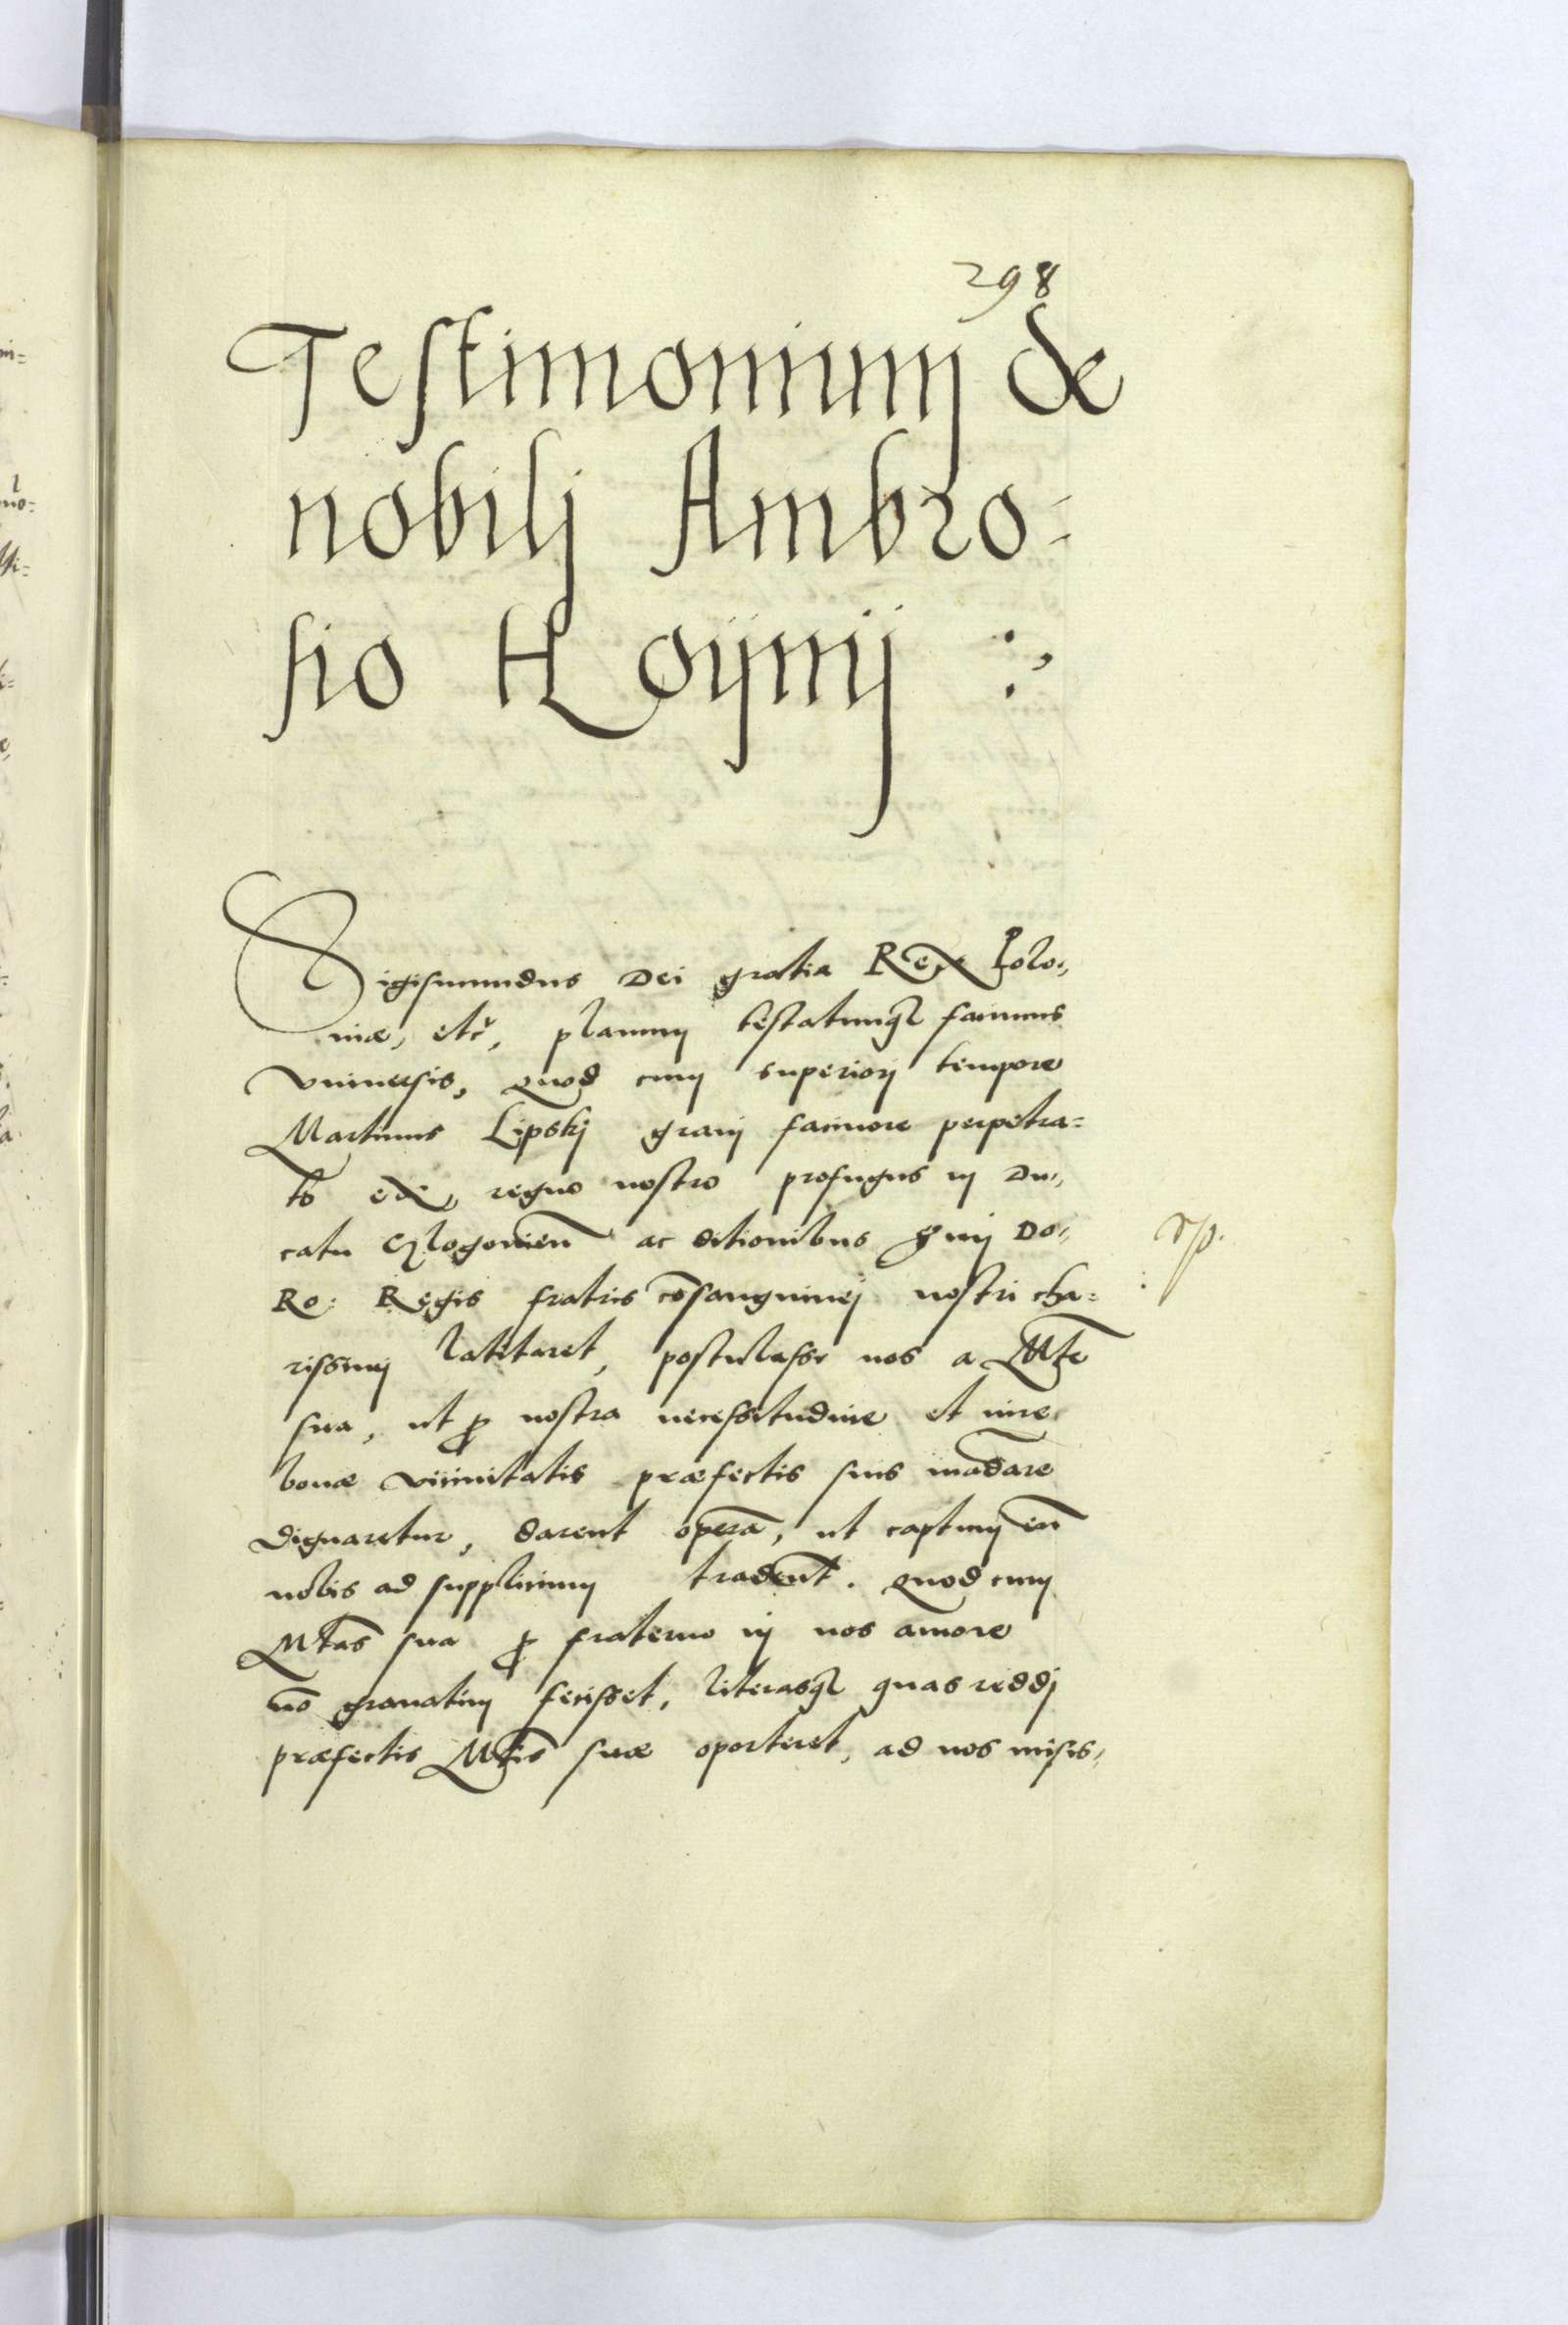 298
Testimonium de
nobilj Ambro-
sio Hoÿmj :,
Sigismundus Dei gratia Rex Polo-
niæ, etč, planum testatumq₃ facimus
Vniuersis, quod cum superiorj tempore
Martinus Lipskj grauj facinore perpetra=
to ex regno nostro profugus in Du-
catu Glogovien̄ ac ditionibus Smj Do-
Ro: Regis fratris cōsanguinej nostri cha=
rissimj latitaret, postulasse nos a Mte
sua, ut ꝓ nostra necessitudine et iure
bonæ vicinitatis præfectis suis mādare
dignaretur, darent operā, ut captum eū
nobis ad supplicium tradent. Quod cum
Mtas sua ꝓ fraterno in nos amore
nō grauatim fecisset, literasq₃ quas reddj
præfectis Mtis suæ oporteret, ad nos misis-